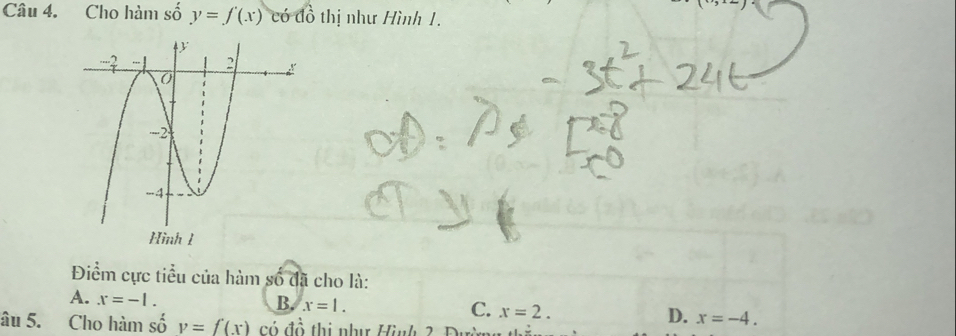 Câu 4. Cho hàm số y = f(x) có đồ thị như Hình 1.
y
-2 -1 2 x
O
-2
-4
Hình 1
- 3t² + 24t
CĐ:
x=8
x=0
CT
Điểm cực tiểu của hàm số đã cho là:
A. x = -1. B. x = 1. C. x = 2. D. x = -4.
âu 5. Cho hàm số y = f(x) có đồ thị như Hình 2. Đường thẳng